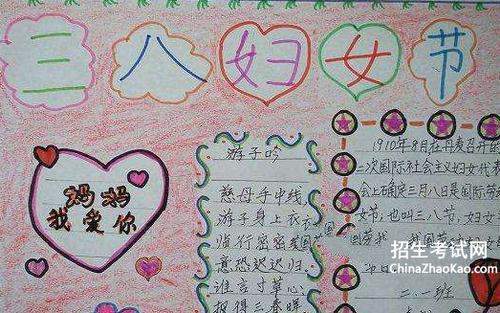 三八妇女节
妈妈
我爱你
游子吟
慈母手中线，
游子身上衣
临行密密
意恐迟迟归。
谁言寸草心，
报得三春晖
1910年8月在丹麦召开的
二次国际社会主义妇女代表
会上确定三月八日是国际劳
女节，也叫三八节，妇女
二.一班
招生考试网
ChinaZhaoKao.com